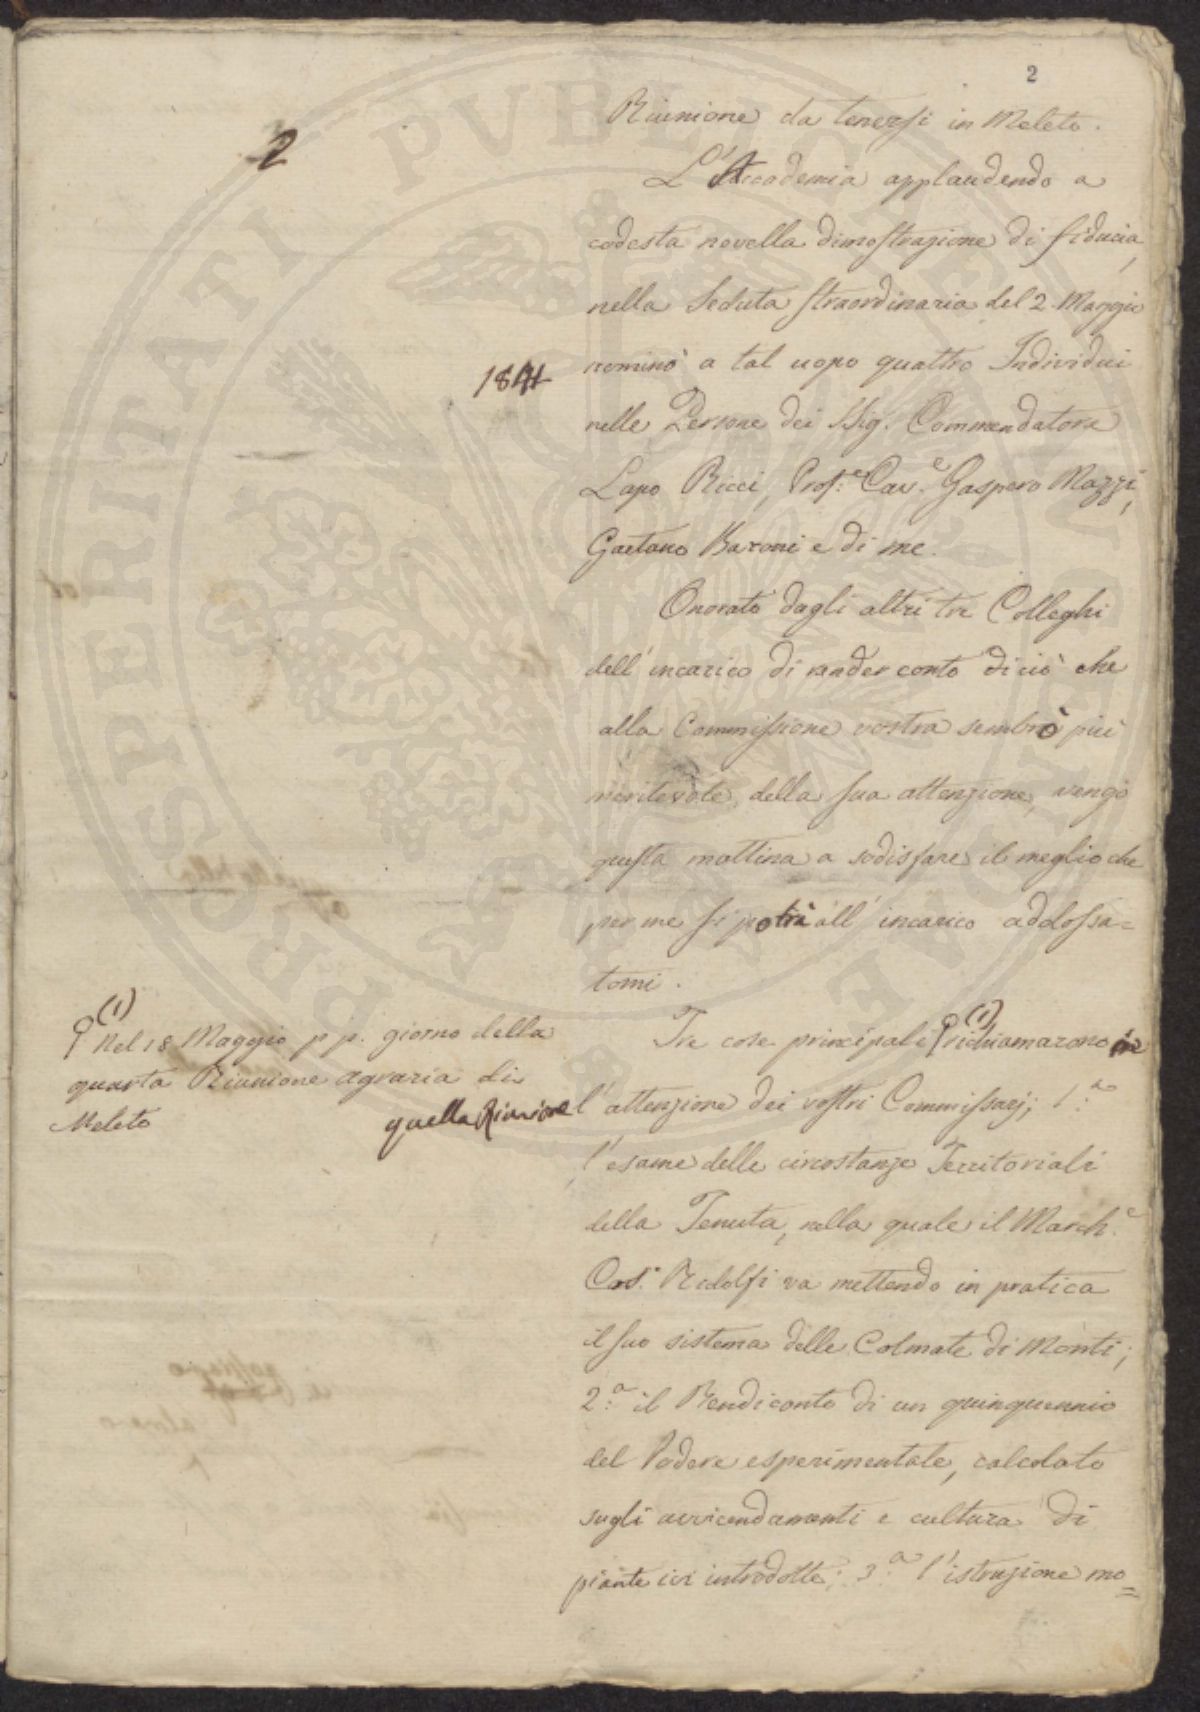 2
2
Riunione da tenersi in Meleto.
L'Accademia applaudendo a
codesta novella dimostrazione di fiducia,
nella Seduta straordinaria del 2. Maggio
1841
nominò a tal uopo quattro Individui
nelle Persone dei SSig. Commendatore
Lapo Ricci, Prof.e Cav.e Gaspero Mazzi,
Gaetano Baroni e di me.
Onorato dagli altri tre Colleghi
dell'incarico di render conto di ciò che
alla Commissione vostra sembrò più
meritevole della sua attenzione, vengo
questa mattina a sodisfare il meglio che
per me si potrà all'incarico addossa=
tomi.
Tre cose principali (1) richiamarono in
(1) Nel 18 Maggio p.p. giorno della
quarta Riunione agraria di
Meleto
quella Riunione
l'attenzione dei vostri Commissarj; 1.a
l'esame delle circostanze Territoriali
della Tenuta, nella quale il March.e
Cos.o Ridolfi va mettendo in pratica
il suo sistema delle Colmate di Monti;
2.a il Rendiconto di un quinquennio
del Podere esperimentale, calcolato
sugli avvicendamenti e cultura di
piante ivi introdotte; 3.a l'istruzione mo=
PROSPERITATI PVBLICAE AVGENDAE